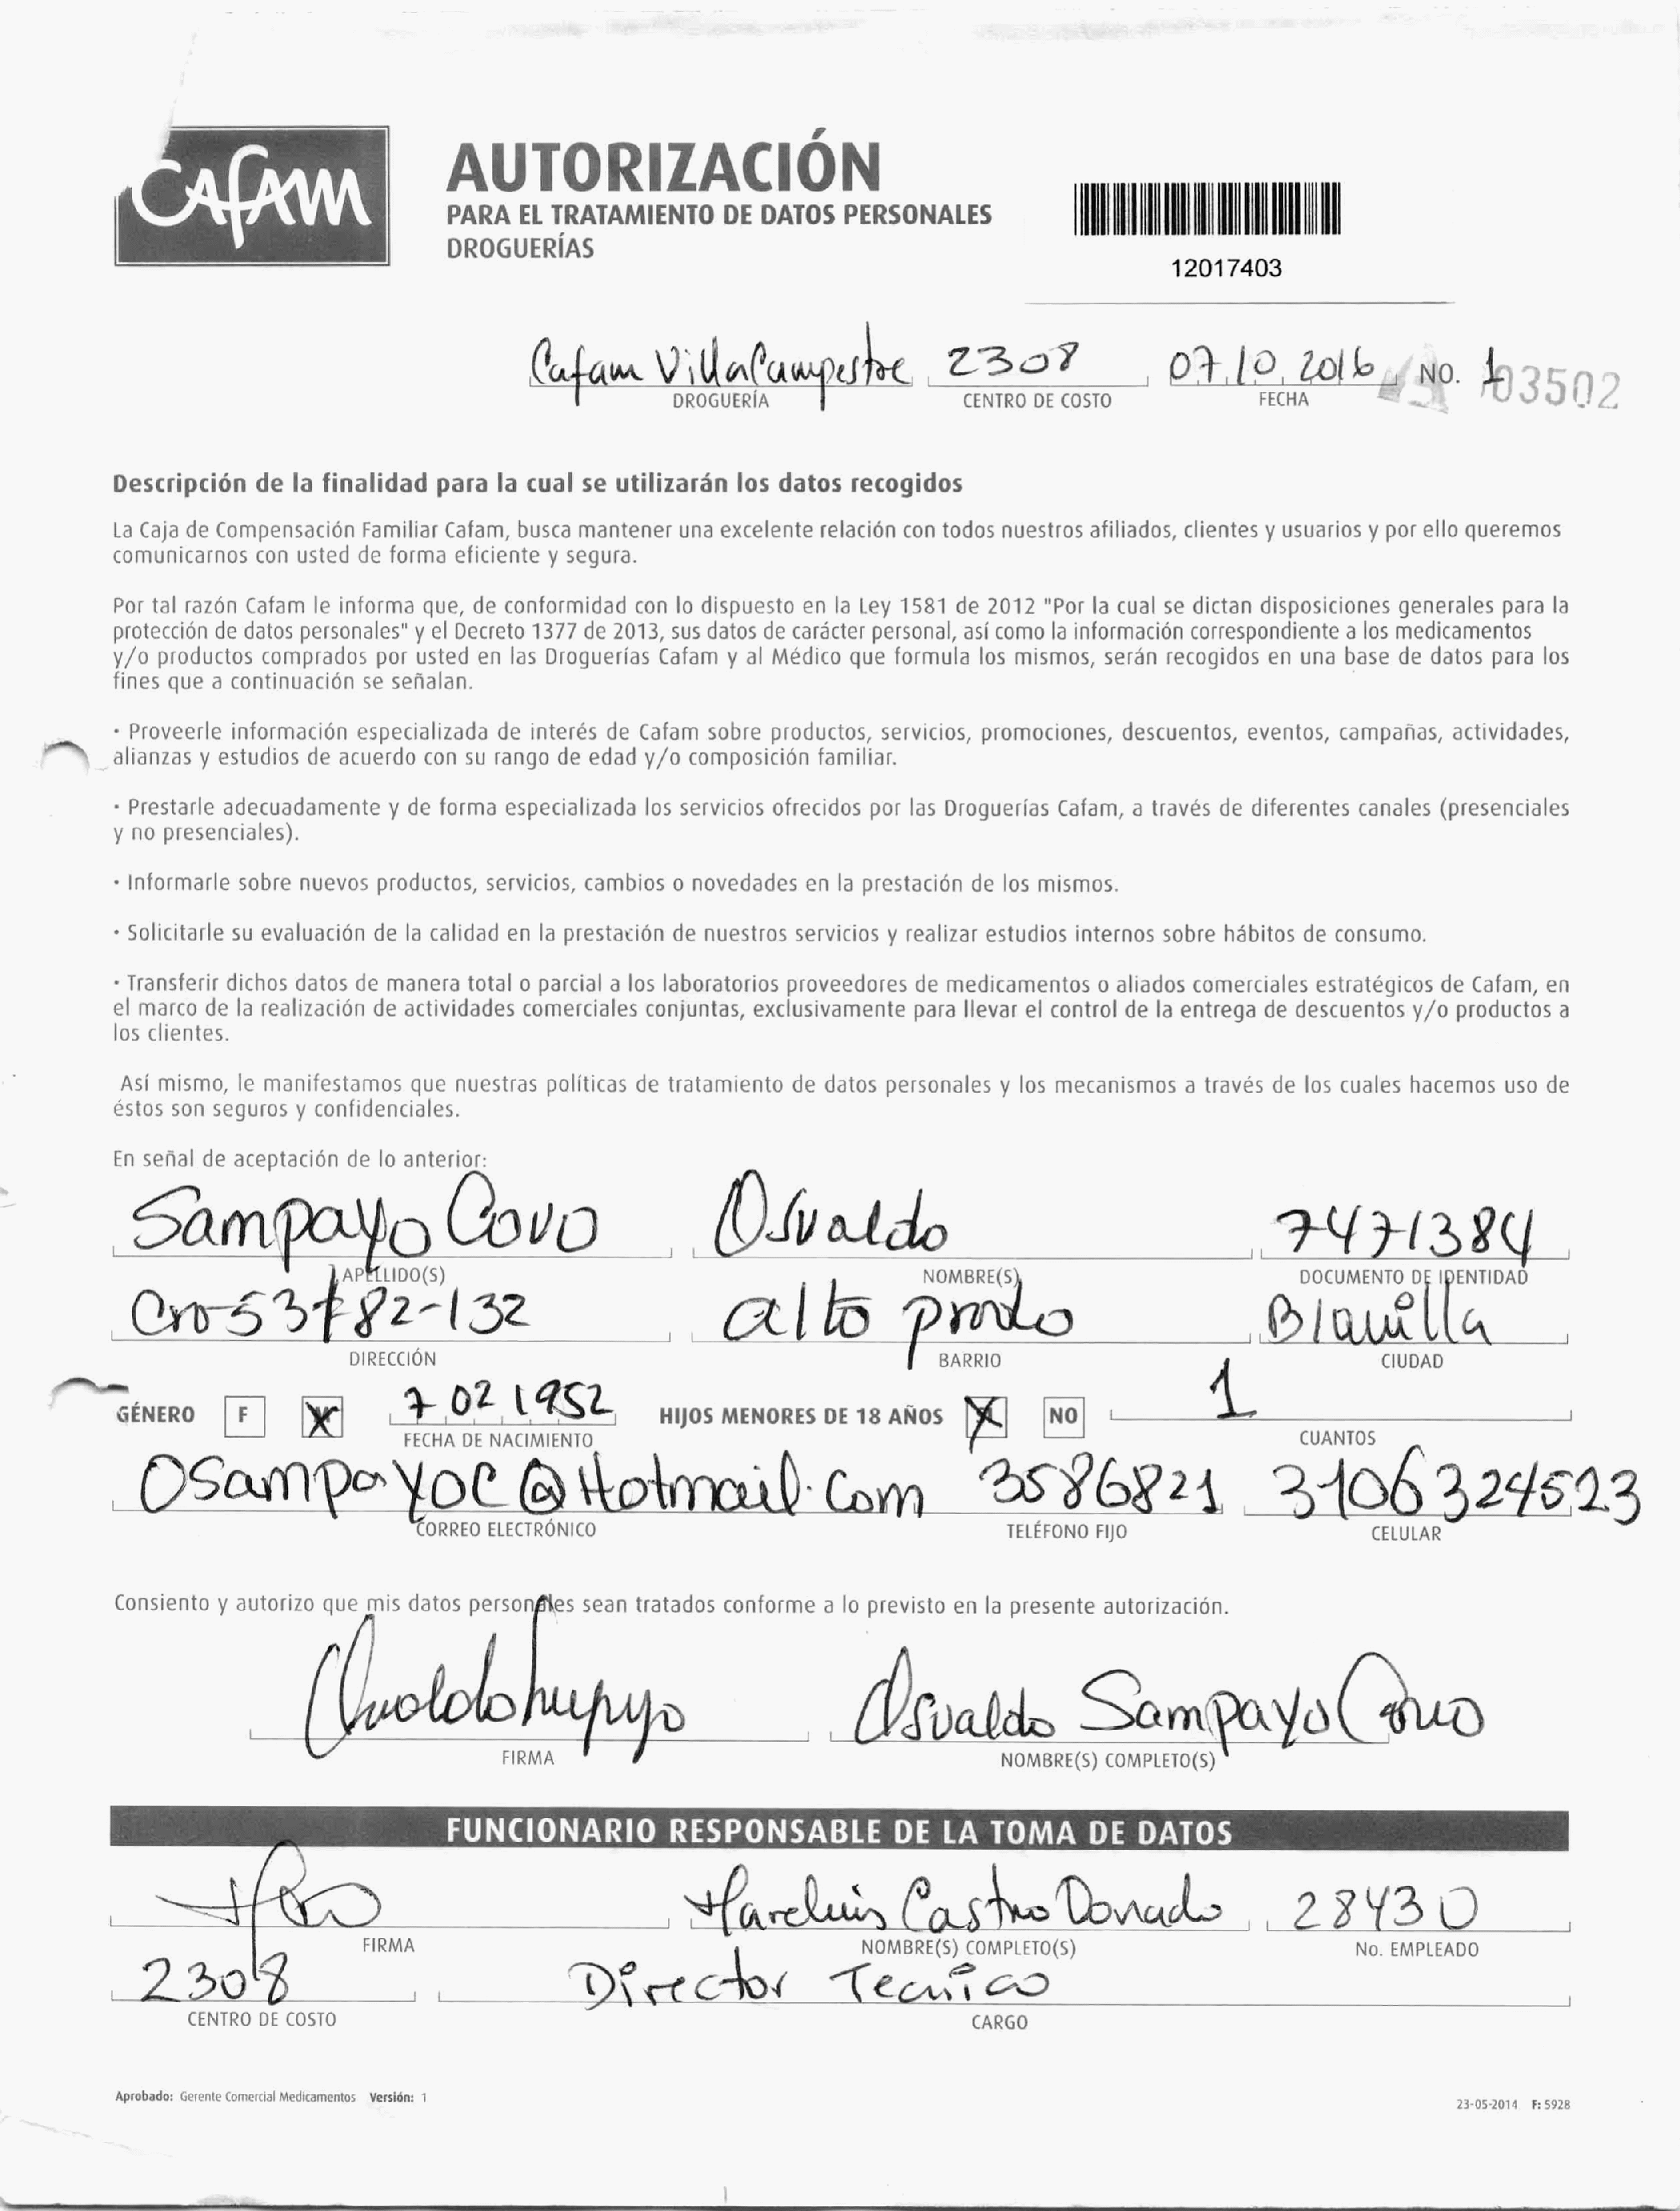 CAFAM
AUTORIZACIÓN
PARA EL TRATAMIENTO DE DATOS PERSONALES
DROGUERÍAS
12017403
Cafam VillaCampestre 2308 07 10 2016 NO. 103502
DROGUERÍA CENTRO DE COSTO FECHA
Descripción de la finalidad para la cual se utilizarán los datos recogidos
La Caja de Compensación Familiar Cafam, busca mantener una excelente relación con todos nuestros afiliados, clientes y usuarios y por ello queremos
comunicarnos con usted de forma eficiente y segura.
Por tal razón Cafam le informa que, de conformidad con lo dispuesto en la Ley 1581 de 2012 "Por la cual se dictan disposiciones generales para la
protección de datos personales" y el Decreto 1377 de 2013, sus datos de carácter personal, así como la información correspondiente a los medicamentos
y/o productos comprados por usted en las Droguerías Cafam y al Médico que formula los mismos, serán recogidos en una base de datos para los
fines que a continuación se señalan.
· Proveerle información especializada de interés de Cafam sobre productos, servicios, promociones, descuentos, eventos, campañas, actividades,
alianzas y estudios de acuerdo con su rango de edad y/o composición familiar.
· Prestarle adecuadamente y de forma especializada los servicios ofrecidos por las Droguerías Cafam, a través de diferentes canales (presenciales
y no presenciales).
· Informarle sobre nuevos productos, servicios, cambios o novedades en la prestación de los mismos.
· Solicitarle su evaluación de la calidad en la prestación de nuestros servicios y realizar estudios internos sobre hábitos de consumo.
· Transferir dichos datos de manera total o parcial a los laboratorios proveedores de medicamentos o aliados comerciales estratégicos de Cafam, en
el marco de la realización de actividades comerciales conjuntas, exclusivamente para llevar el control de la entrega de descuentos y/o productos a
los clientes.
Así mismo, le manifestamos que nuestras políticas de tratamiento de datos personales y los mecanismos a través de los cuales hacemos uso de
éstos son seguros y confidenciales.
En señal de aceptación de lo anterior:
Sampayo Covo Osvaldo 7471384
APELLIDO(S) NOMBRE(S) DOCUMENTO DE IDENTIDAD
Cro 53#82-132 alto prado B/quilla
DIRECCIÓN BARRIO CIUDAD
GÉNERO F X 7 02 1952 HIJOS MENORES DE 18 AÑOS X NO 1
FECHA DE NACIMIENTO CUANTOS
OSampayoc@Hotmail.Com 3586821 3106324523
CORREO ELECTRÓNICO TELÉFONO FIJO CELULAR
Consiento y autorizo que mis datos personales sean tratados conforme a lo previsto en la presente autorización.
Osvaldo Sampayo Covo
FIRMA NOMBRE(S) COMPLETO(S)
FUNCIONARIO RESPONSABLE DE LA TOMA DE DATOS
Castro Donado 28430
FIRMA NOMBRE(S) COMPLETO(S) No. EMPLEADO
2308 Director Tecnico
CENTRO DE COSTO CARGO
Aprobado: Gerente Comercial Medicamentos Versión: 1
23-05-2014 F: 5928